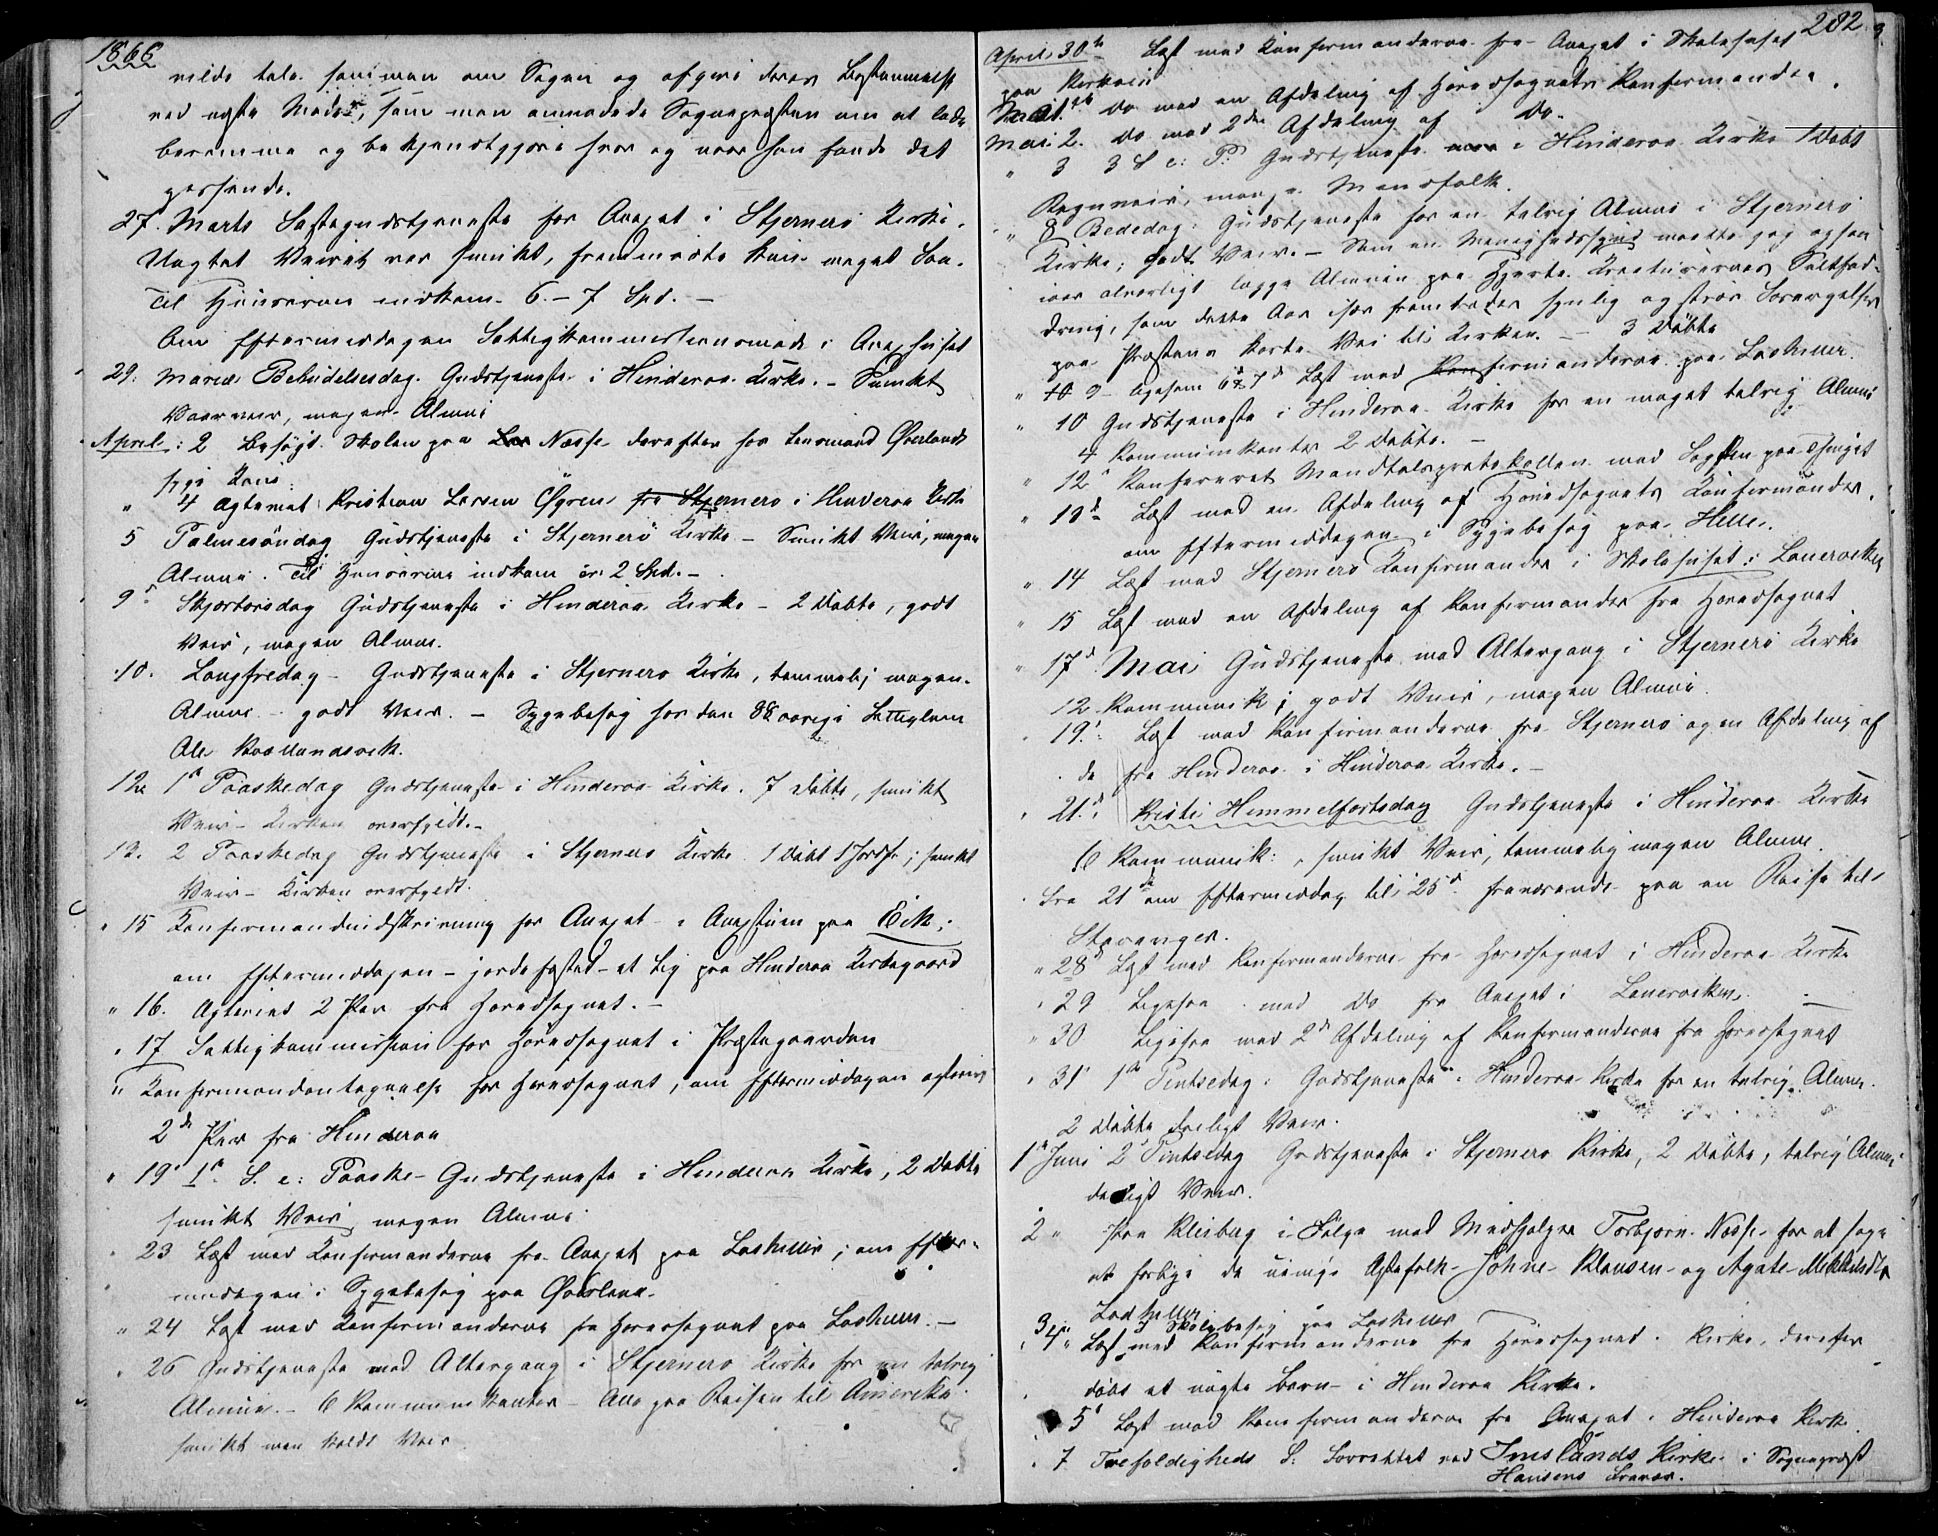 1868
vilde tale sammen om Sagen og afgive deres Bestemmelse
ved næste Møde, som man anmodede Sognepræsten om at lade
beramme og bekjendtgjøre hvor og naar han fandt det
passende.
27. Marts Fastegudstjeneste for Anexet i Stjernerö Kirke.
Uagtet Veiret var smukt, fremmødte kun meget Faa.
Til Hönsöerne indkom 6 - 7 Spd. -
Om Eftermiddagen Fattigkommissionsmöde i Anexhuset
29. Mariæ Bebudelsesdag. Gudstjeneste i Hinderaa Kirke. - Smukt
Vaarveir, megen Almue
April: 2 Besögt Skolen paa Næsse derefter hos Lensmand Överlands
syge Kone.
" 4 Ægteviet Kristian Larsen Ögreid fra Stjernerö i Hinderaa Kirke
5 Palmesöndag Gudstjeneste i Stjernerö Kirke - Smukt Veir, megen
Almue. Til indkom 2 Spd. -
9 Skjærtorsdag Gudstjeneste i Hinderaa Kirke - 2 Döbte, godt
Veir, megen Almue.
10. Langfredag - Gudstjeneste i Stjernerö Kirke, temmelig megen
Almue - godt Veir. - Sygebesög hos den 88 aarige Fattiglem
Ole
12 1ste Paaskedag Gudstjeneste i Hinderaa Kirke. 7 Döbte, smukt
Veir - Kirken overfyldt. -
13. 2 Paaskedag Gudstjeneste i Stjernerö Kirke 1 Döbt 1 Jordf.; smukt
Veir - Kirken overfyldt.
" 15 Konfirmandindskrivning for Anexet i Anexstuen paa Eik;
om Eftermiddagen - jordefæstet et Lig paa Hinderaa Kirkegaard
" 16. Ægteviet 2 Par fra Hovedsognet. -
" 17 Fattigkommission for Hovedsognet i Præstegaarden
" Konfirmandantagelse for Hovedsognet, om Eftermiddagen ægteviet
2de Par fra Hinderaa
" 19 1ste S. e: Paaske - Gudstjeneste i Hinderaa Kirke, 2 Döbte
smukt Veir, megen Almue
" 23 Læst med Konfirmanderne fra Anexet paa Ladhelle; om Efter-
middagen i Sygebesög paa
" 24 Læst med Konfirmanderne fra Hovedsognet paa Ladhelle. -
" 26 Gudstjeneste med Altergang i Stjernerö Kirke for en talrig
Almue. - 6 Kommunikanter - Alle paa Reisen til Amerika.
smukt men koldt Veir
282
April 30te Læst med Konfirmanderne fra Anexet i Skolehuset
paa
Mai 1ste Do med en Afdeling af Hovedsognets Konfirmander.
Mai 2. Do med 2den Afdeling af Do.
" 3 3 S e: P: Gudstjeneste i Hinderaa Kirke 1 Döbt
Regnveir, mange Mandfolk.
" 8 Bededag: Gudstjeneste for en talrig Almue i Stjernerö
Kirke; godt Veir. - Som en Menighedssynd maatte jeg ogsaa
iaar alvorligt lægge Almuen paa Hjerte Kreaturernes Sultfod-
dring, som dette Aar især frembøder synlig og stor Forargelse
paa Præstens korte Vei til Kirken. - 3 Döbte
" 9 ligesom 6te & 7de Læst med Konfirmanderne paa Ladhelle.
" 10 Gudstjeneste i Hinderaa Kirke for en meget talrig Almue
4 Kommunikanter 2 Döbte. -
" 12 Konfereret Mandtalsprotokollen med Fogden paa Thinget
" 13de Læst med en Afdeling af Hovedsognets Konfirmander.
om Eftermiddagen i Sygebesög paa Helle.
" 14 Læst med Stjernerö Konfirmander i Skolehuset i
" 15 Læst med en Afdeling af Konfirmander fra Hovedsognet
" 17de Mai Gudstjeneste med Altergang i Stjernerö Kirke
12 Kommunik; godt Veir, megen Almue.
" 19. Læst med Konfirmanderne fra Stjernerö og en Afdeling af
do fra Hinderaa i Hinderaa Kirke. -
" 21. Kristi Himmelfartsdag Gudstjeneste i Hinderaa Kirke
6 Kommunik:, smukt Veir, temmelig megen Almue.
Fra 21de om Eftermiddag til 25de fraværende paa en Reise til
Stavanger.
" 28 Læst med Konfirmanderne fra Hovedsognet i Hinderaa Kirke
" 29 Ligesaa med Do fra Anexet i
" 30 Ligesaa med 2de Afdeling af Konfirmanderne fra Hovedsognet
" 31 1ste Pintsedag: Gudstjeneste i Hinderaa Kirke for en talrig Almue.
2 Döbte deiligt Veir.
1ste Juni 2 Pintsedag Gudstjeneste i Stjernerö Kirke, 2 Döbte, talrig Almue
deiligt Veir.
2 " paa Kleiberg i Fölge med Medhjelper Torbjørn Næsse for at søge
at forlige de uenige Ægtefolk Johne Klausen og Agate
Ladhelle
3 " Skolebesög paa Ladhelle
4 " Læst med Konfirmanderne fra Hovedsognet i Kirke, derefter
döbt et uægte Barn i Hinderaa Kirke.
5 Læst med Konfirmanderne fra Anexet i Hinderaa Kirke
" 7 Trefoldigheds S. Forrettet ved Imslands Kirke i Sognepræst
Hansens Fravær.